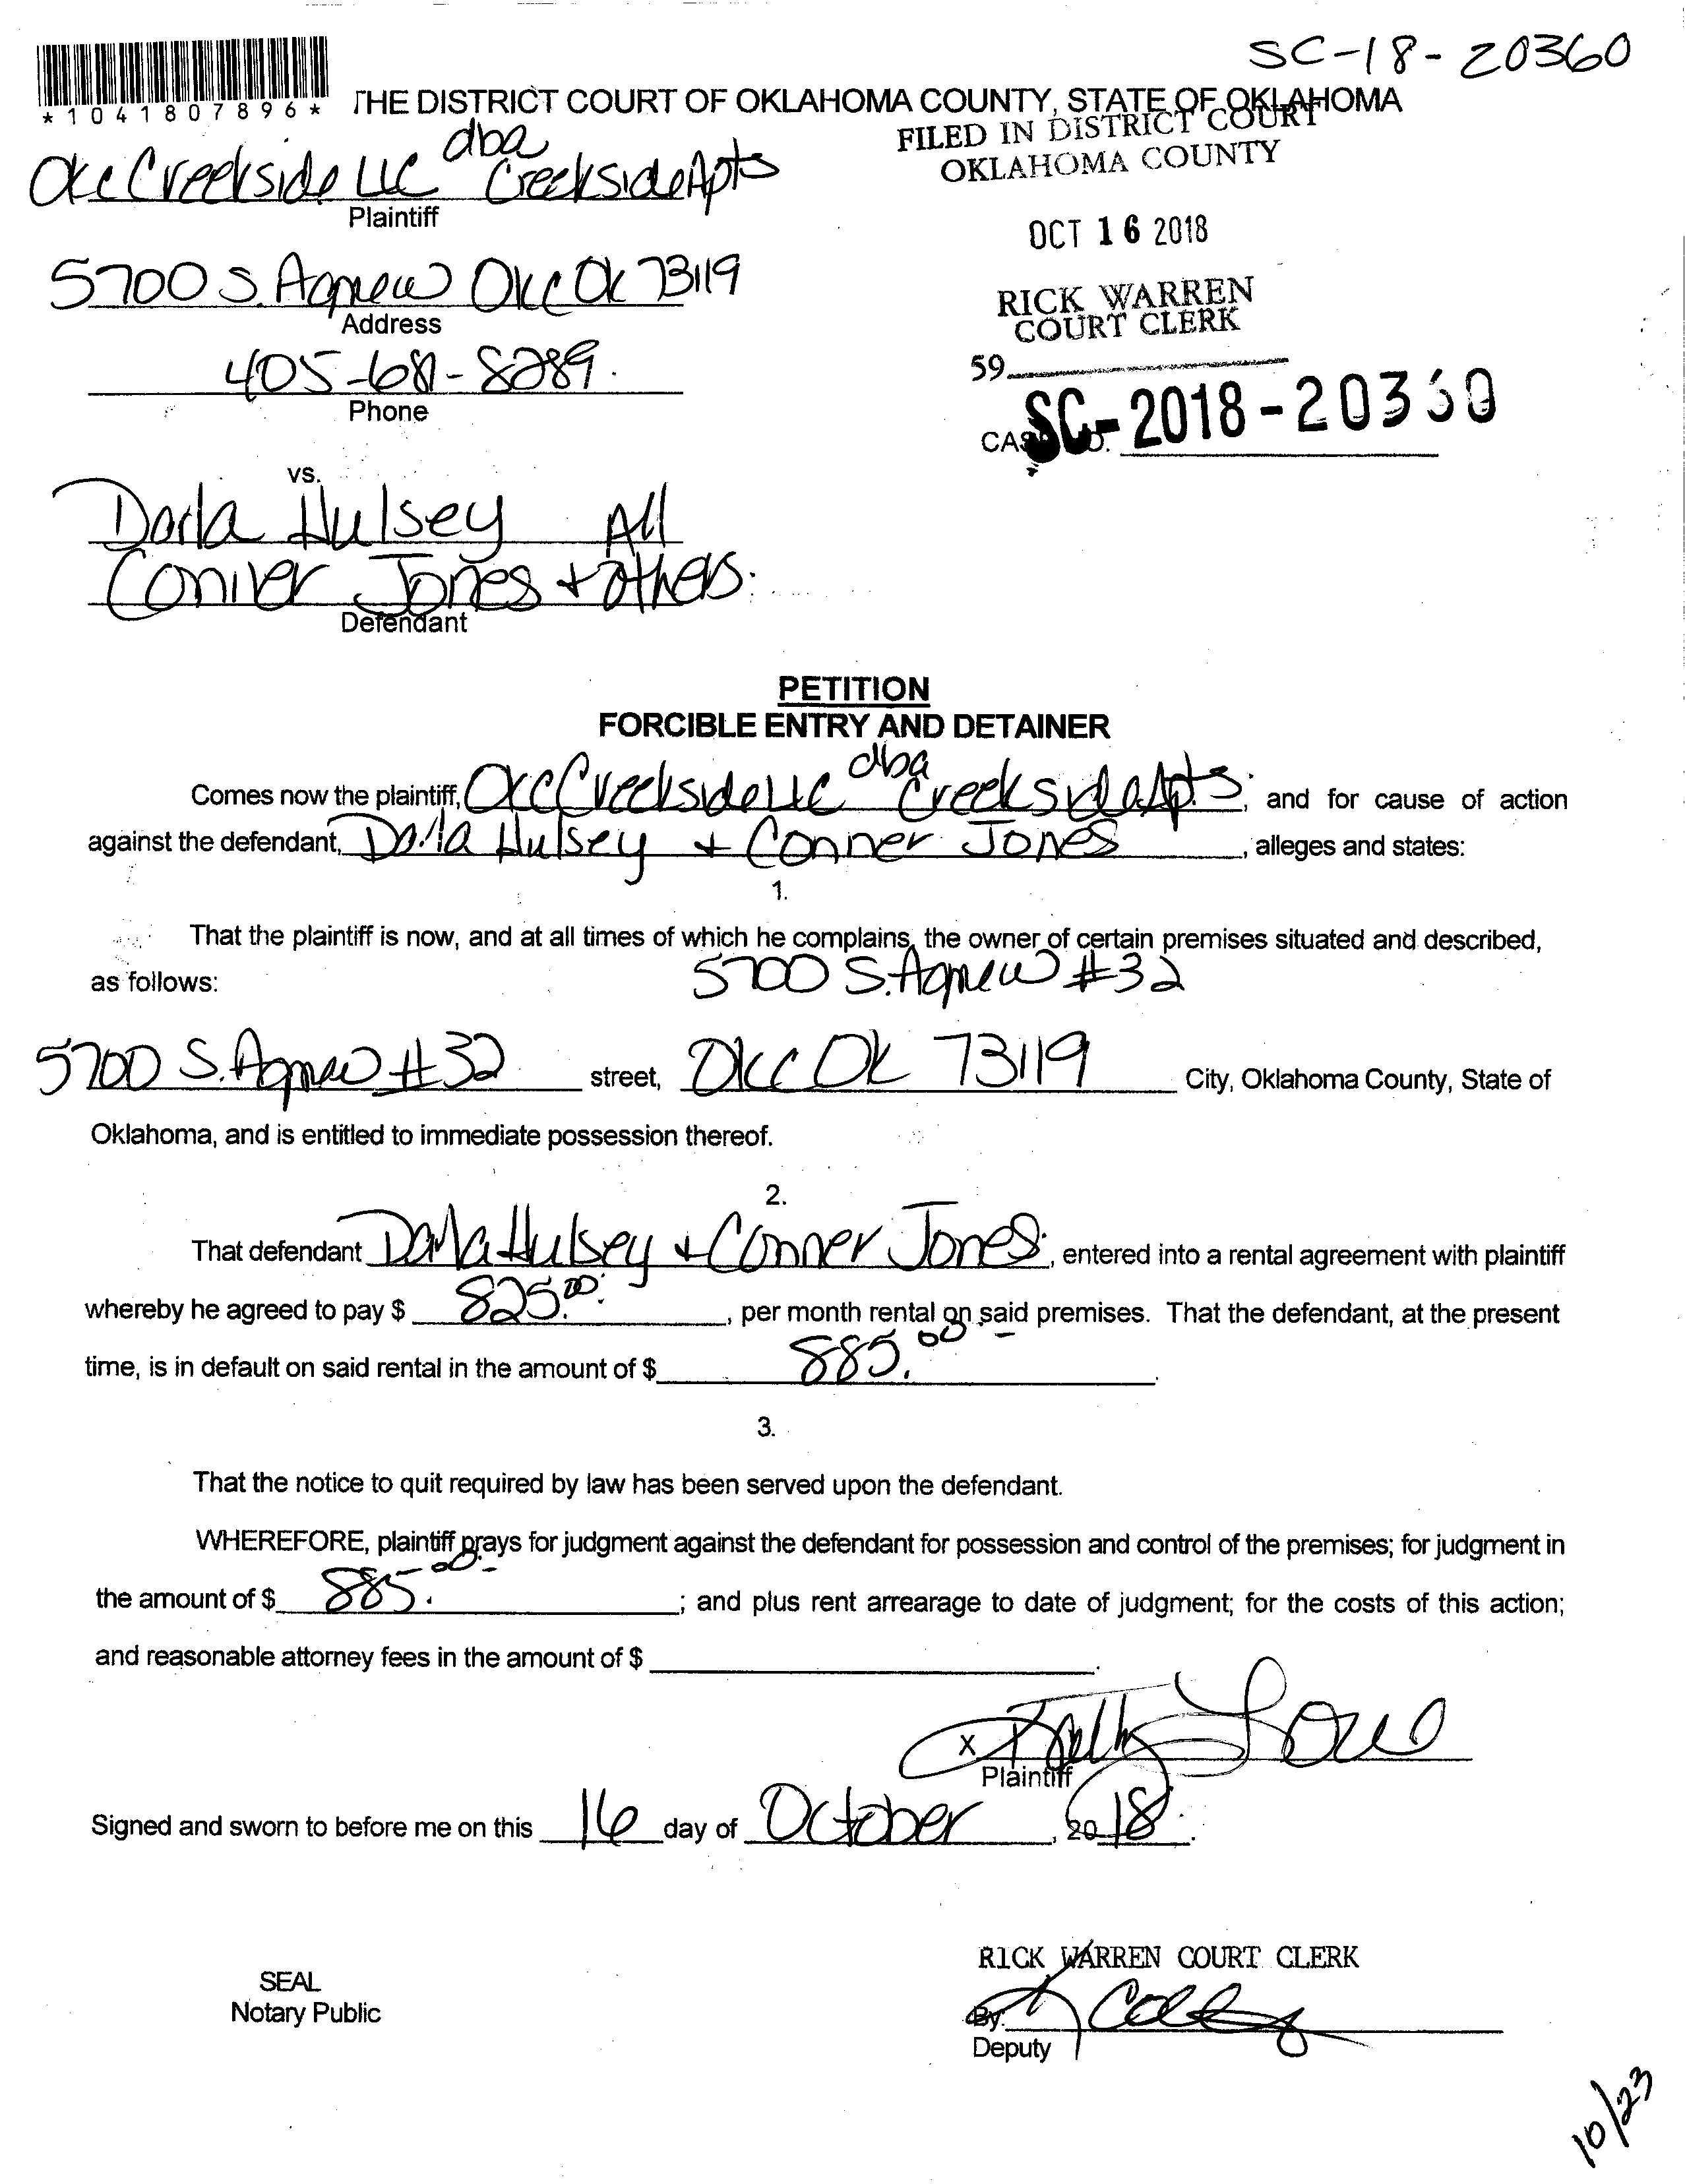 SC-18-20360
*1041807896*
THE DISTRICT COURT OF OKLAHOMA COUNTY, STATE OF OKLAHOMA
FILED IN DISTRICT COURT
OKLAHOMA COUNTY
dba
Okc Creekside LLC Creekside Apts
Plaintiff
OCT 16 2018
5700 S. Agnew Okc Ok 73119
Address
RICK WARREN
COURT CLERK
405-681-8289.
Phone
59
SC-2018-20360
vs.
Darla Hulsey All
Conner Jones + others.
Defendant
PETITION
FORCIBLE ENTRY AND DETAINER
dba
Comes now the plaintiff, Okc Creekside LLC Creekside Apts, and for cause of action
against the defendant, Darla Hulsey + Conner Jones, alleges and states:
1.
That the plaintiff is now, and at all times of which he complains, the owner of certain premises situated and described,
as follows: 5700 S. Agnew #32
5700 S. Agnew #32 street, Okc Ok 73119 City, Oklahoma County, State of
Oklahoma, and is entitled to immediate possession thereof.
2.
That defendant Darla Hulsey + Conner Jones, entered into a rental agreement with plaintiff
whereby he agreed to pay $ 825.00, per month rental on said premises. That the defendant, at the present
time, is in default on said rental in the amount of $ 885.00.
3.
That the notice to quit required by law has been served upon the defendant.
WHEREFORE, plaintiff prays for judgment against the defendant for possession and control of the premises; for judgment in
the amount of $ 885.00; and plus rent arrearage to date of judgment; for the costs of this action;
and reasonable attorney fees in the amount of $
X Kelly Lowe
Plaintiff
Signed and sworn to before me on this 16 day of October, 2018.
RICK WARREN COURT CLERK
SEAL
Notary Public
By:
Deputy
10/23